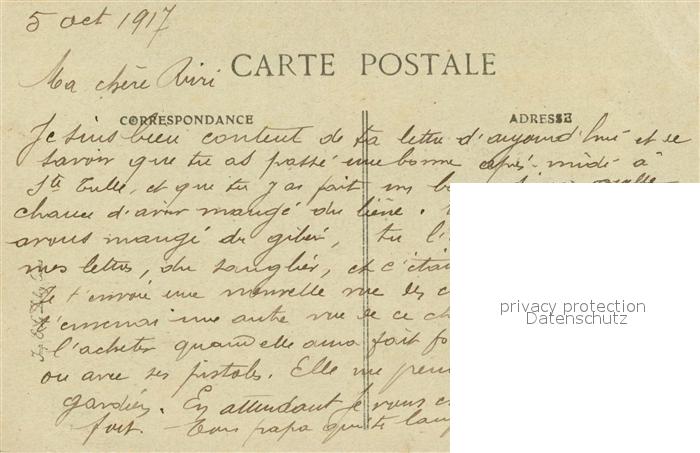 5 oct 1917
Ma chère Riri
CARTE POSTALE
CORRESPONDANCE
ADRESSE
Je suis bien content de ta lettre d'aujourd'hui et de
savoir que tu as passé une bonne après-midi à
Ste Tulle, et que tu y as fait un
chance d'avoir mangé du lièvre.
avons mangé du gibier, tu l'
mes lettres, du sanglier, et c'était
Je t'envoie une nouvelle vue des
t'enverrai une autre vue de ce
l'acheter quand elle aura fait
ou avec ses pistoles. Elle me
gardiens. En attendant je vous
fort. Ton papa qui te
privacy protection
Datenschutz